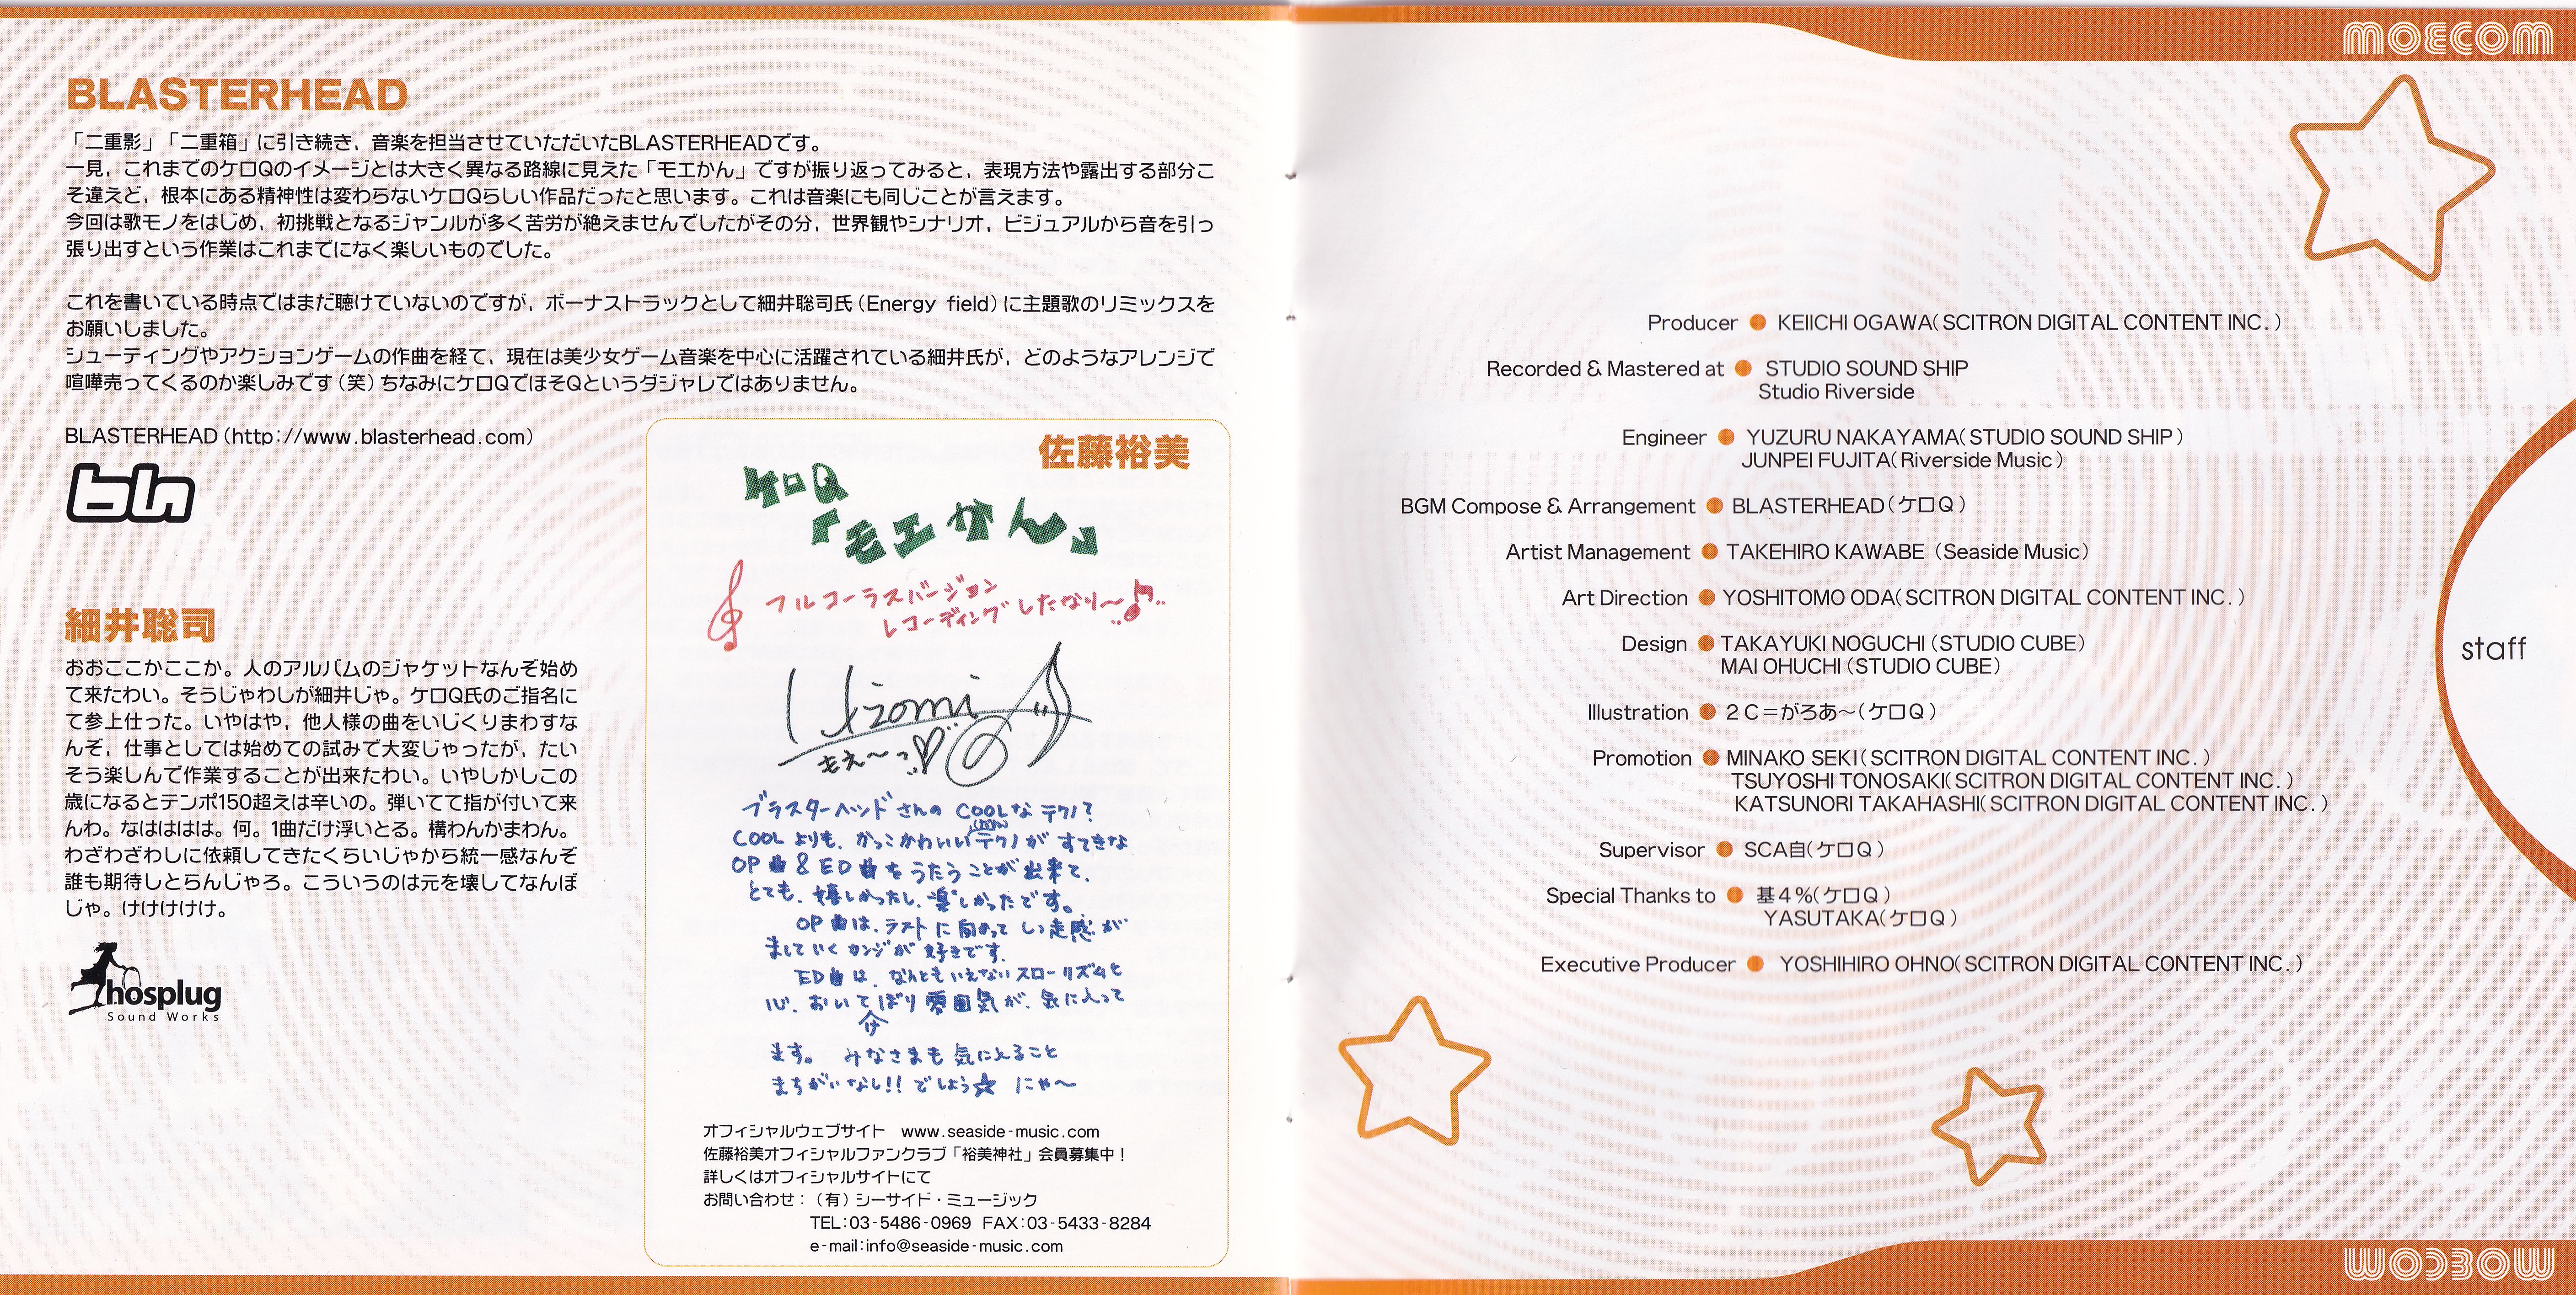 BLASTERHEAD
「二重影」「二重箱」に引き続き，音楽を担当させていただいたBLASTERHEADです。
一見，これまでのケロQのイメージとは大きく異なる路線に見えた「モエかん」ですが振り返ってみると，表現方法や露出する部分こ
そ違えど，根本にある精神性は変わらないケロQらしい作品だったと思います。これは音楽にも同じことが言えます。
今回は歌モノをはじめ，初挑戦となるジャンルが多く苦労が絶えませんでしたがその分，世界観やシナリオ，ビジュアルから音を引っ
張り出すという作業はこれまでになく楽しいものでした。
これを書いている時点ではまだ聴けていないのですが，ボーナストラックとして細井聡司氏（Energy field）に主題歌のリミックスを
お願いしました。
シューティングやアクションゲームの作曲を経て，現在は美少女ゲーム音楽を中心に活躍されている細井氏が，どのようなアレンジで
喧嘩売ってくるのか楽しみです（笑）ちなみにケロQでほそQというダジャレではありません。
BLASTERHEAD（http://www.blasterhead.com）
blh
細井聡司
おおここかここか。人のアルバムのジャケットなんぞ始め
て来たわい。そうじゃわしが細井じゃ。ケロQ氏のご指名に
て参上仕った。いやはや，他人様の曲をいじくりまわすな
んぞ，仕事としては始めての試みで大変じゃったが，たい
そう楽しんで作業することが出来たわい。いやしかしこの
歳になるとテンポ150超えは辛いの。弾いてて指が付いて来
んわ。なはははは。何。1曲だけ浮いとる。構わんかまわん。
わざわざわしに依頼してきたくらいじゃから統一感なんぞ
誰も期待しとらんじゃろ。こういうのは元を壊してなんぼ
じゃ。けけけけけ。
hosplug
Sound Works
佐藤裕美
ケロQ
「モエかん」
フルコーラスバージョン
レコーディングしたなり〜♪..
Hizomi
もえ〜っ♡
ブラスターヘッドさんの COOLな テクノ？
COOL よりも、かっこかわいいテクノが すてきな
OP曲 & ED曲をうたうことが出来て、
とても、嬉しかったし、楽しかったです。
OP曲は、ラストに向かって しっ走感が
ましていくカンジが好きです。
ED曲は、なんともいえないスローリズムと
心、おいてけぼり雰囲気が、気に入って
ます。 みなさまも気に入ること
まちがいなし!! でしょう☆ にゃ〜
オフィシャルウェブサイト　www.seaside-music.com
佐藤裕美オフィシャルファンクラブ「裕美神社」会員募集中！
詳しくはオフィシャルサイトにて
お問い合わせ：（有）シーサイド・ミュージック
TEL:03-5486-0969 FAX:03-5433-8284
e-mail:info@seaside-music.com
MOECOM
Producer ● KEIICHI OGAWA(SCITRON DIGITAL CONTENT INC.)
Recorded & Mastered at ● STUDIO SOUND SHIP
Studio Riverside
Engineer ● YUZURU NAKAYAMA(STUDIO SOUND SHIP)
JUNPEI FUJITA(Riverside Music)
BGM Compose & Arrangement ● BLASTERHEAD(ケロQ)
Artist Management ● TAKEHIRO KAWABE (Seaside Music)
Art Direction ● YOSHITOMO ODA(SCITRON DIGITAL CONTENT INC.)
Design ● TAKAYUKI NOGUCHI (STUDIO CUBE)
MAI OHUCHI (STUDIO CUBE)
staff
Illustration ● 2C=がろあ〜(ケロQ)
Promotion ● MINAKO SEKI(SCITRON DIGITAL CONTENT INC.)
TSUYOSHI TONOSAKI(SCITRON DIGITAL CONTENT INC.)
KATSUNORI TAKAHASHI(SCITRON DIGITAL CONTENT INC.)
Supervisor ● SCA自(ケロQ)
Special Thanks to ● 基4%(ケロQ)
YASUTAKA(ケロQ)
Executive Producer ● YOSHIHIRO OHNO(SCITRON DIGITAL CONTENT INC.)
MOECOM